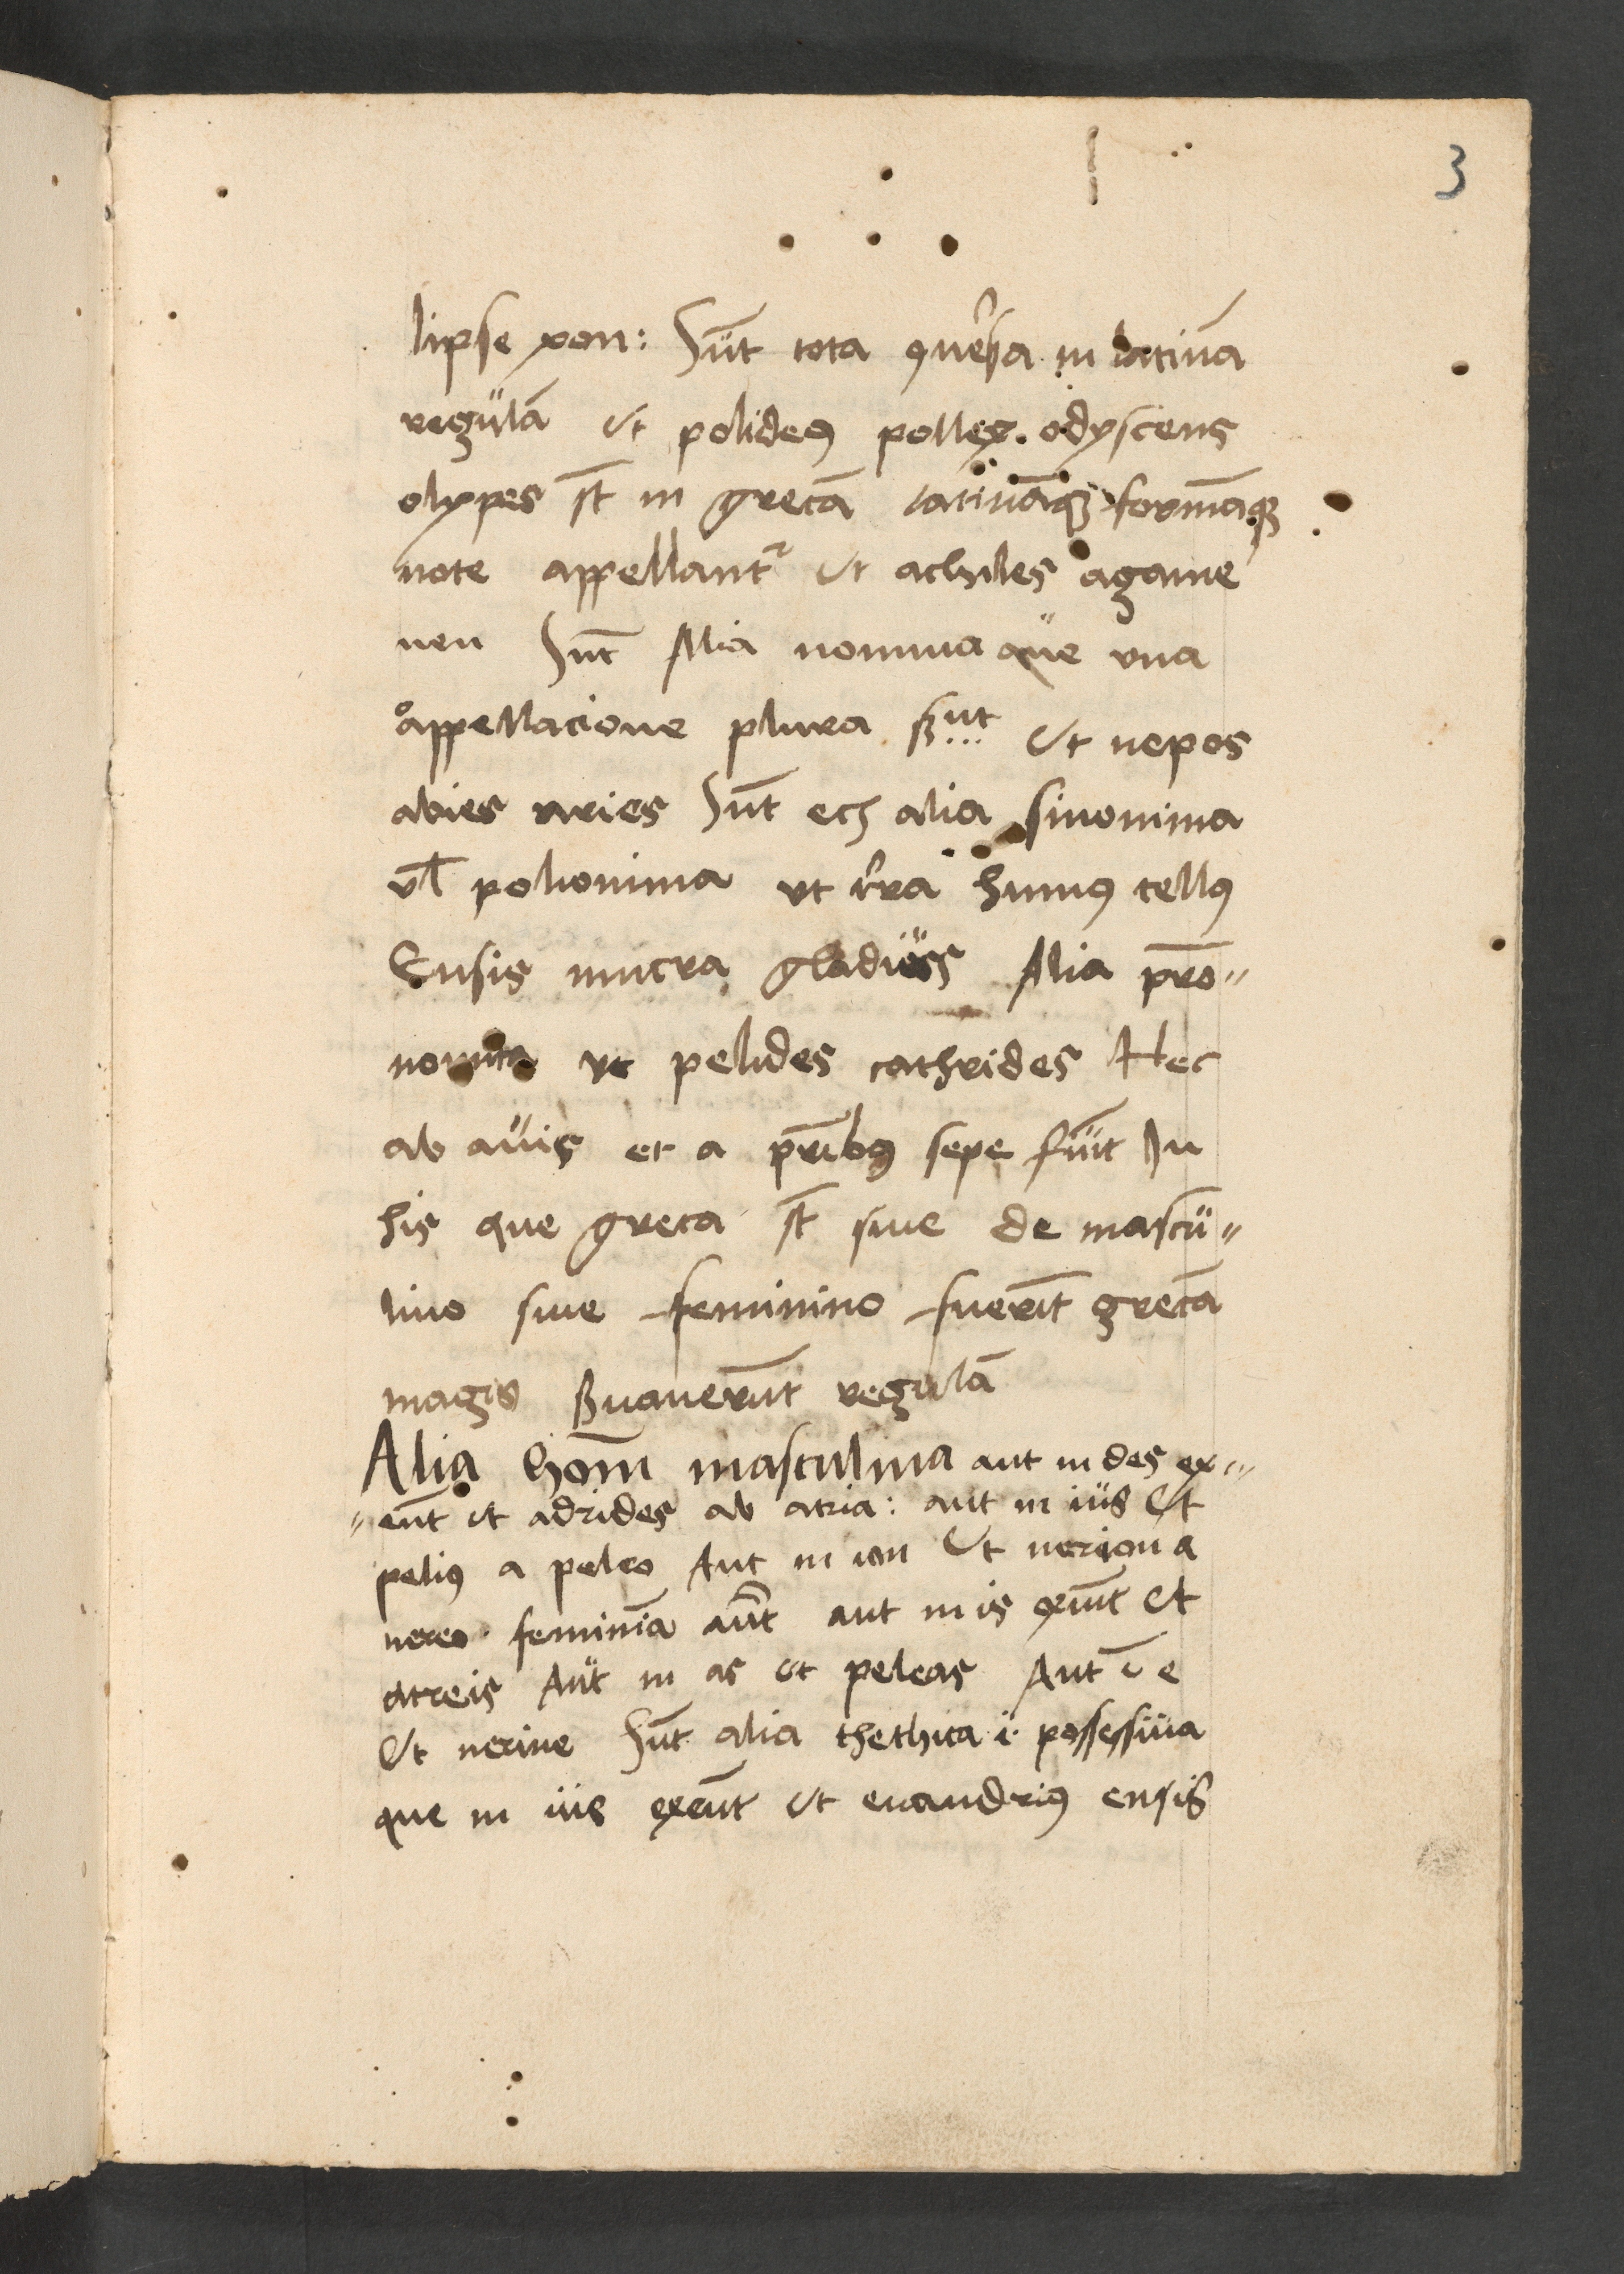 3
lipse xon: Sūt tota ꝯuersa in latinā
regulā ut polideꝰ pollex. odysceus
olyxpes st̄ in grecā latinā formāqꝫ
note appellantᷣ ut achiles agame
nen Sūt Alia nomina que vna
appellacione plura sunt ut nepos
abies aries Sūt eciā alia sinonima
vl̄ polionima ut terra humꝰ tellꝰ
Ensis mucra gladius Alia prō"
nomina ut pelides cathrides Hec
ab auis et a pr̄ibꝰ sepe fiūt In
his que greca st̄ siue de mascu"
lino siue feminino fuerīt grecā
magis ßuauerūt regulā
Alia hom̄ masculina aut in des ex"
"eūt ut adrides ab atria: aut in ius Ut
peliꝰ a peleo Aut in ion Ut nerion a
nereo feminīa aūt aut in is exeūt Ut
atreis Aut in as ut peleas Aut ī e
Ut nerine Sūt alia thethica .i. possessiua
que in ius exeūt ut euandriꝰ ensis